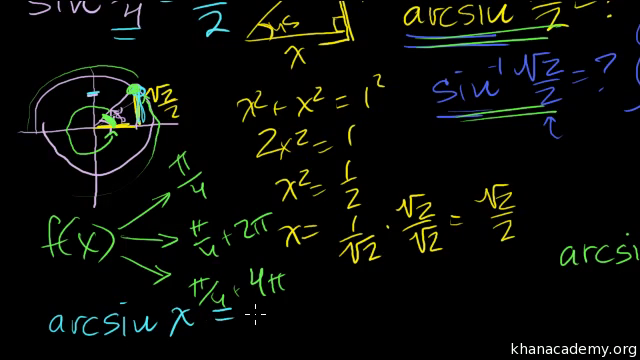 sin π/4 = √2/2
45
x
arcsin √2/2 = ?
sin⁻¹ √2/2 = ?
√2/2
x² + x² = 1²
2x² = 1
x² = 1/2
x = 1/√2 · √2/√2 = √2/2
f(x)
π/4
π/4 + 2π
π/4 + 4π
arcsin x =
arcsi
khanacademy.org